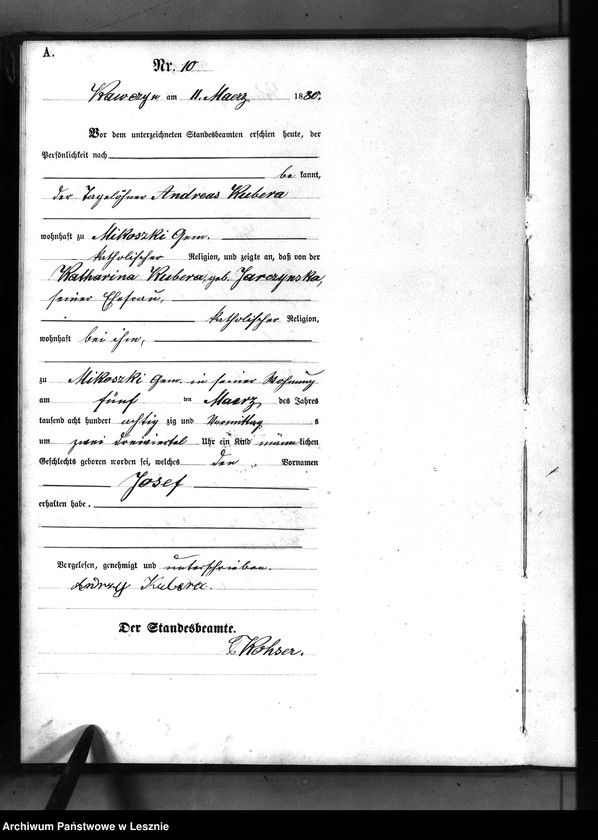 A.
Nr. 10
Kawczyn am 11. Maerz 1880.
Vor dem unterzeichneten Standesbeamten erschien heute, der
Persönlichkeit nach
bekannt,
der Tagelöhner Andreas Kubera
wohnhaft zu Mikoszki Gem.
katholischer Religion, und zeigte an, daß von der
Katharina Kubera, geb. Jarczynska,
seiner Ehefrau,
katholischer Religion,
wohnhaft bei ihm,
zu Mikoszki Gem. in seiner Wohnung
am fünf ten Maerz des Jahres
tausend acht hundert achtzig zig und Vormittag s
um zwei dreiviertel Uhr ein Kind männlichen
Geschlechts geboren worden sei, welches den Vornamen
Josef
erhalten habe.
Vorgelesen, genehmigt und unterschrieben.
Andrzy Kubera.
Der Standesbeamte.
Kohser.
Archiwum Państwowe w Lesznie